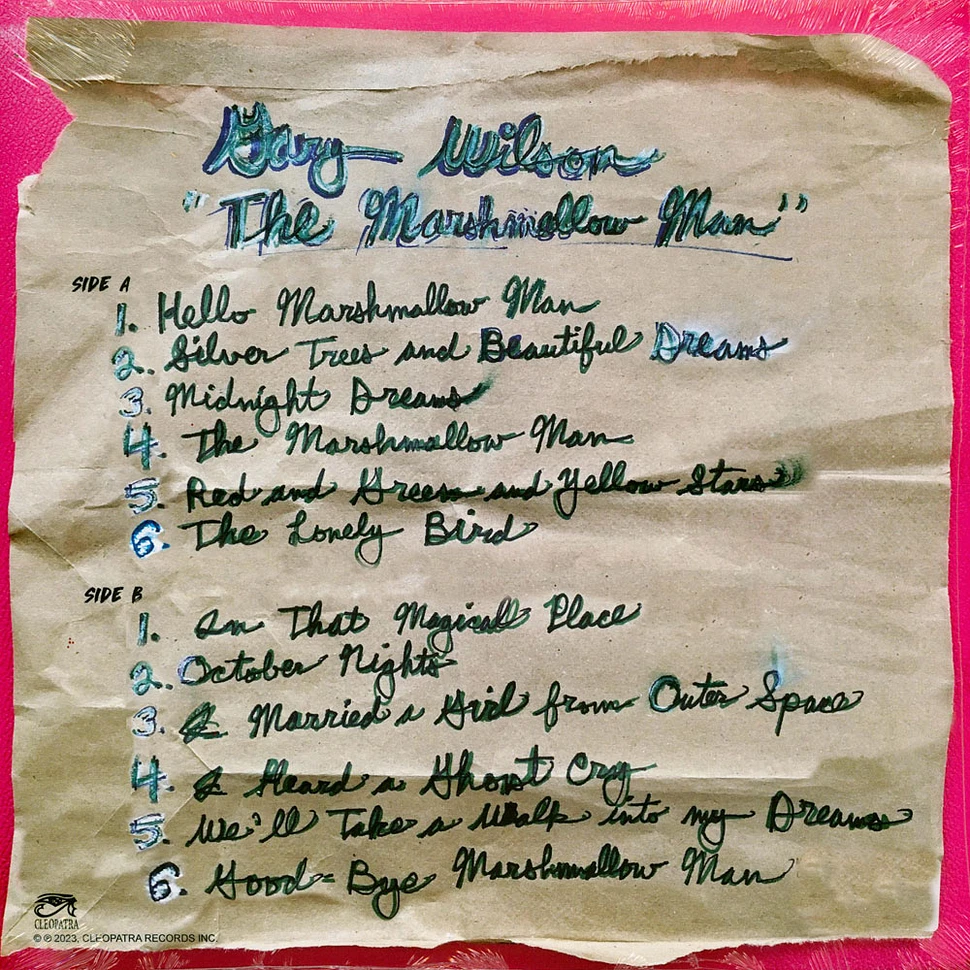 Gary Wilson
"The Marshmallow Man"
SIDE A
1. Hello Marshmallow Man
2. Silver Trees and Beautiful Dreams
3. Midnight Dreams
4. The Marshmallow Man
5. Red and Green and Yellow Stars
6. The Lonely Bird
SIDE B
1. In That Magical Place
2. October Nights
3. I Married a Girl from Outer Space
4. I Heard a Ghost Cry
5. We'll Take a Walk into my Dreams
6. Good-Bye Marshmallow Man
CLEOPATRA
© ℗ 2023, CLEOPATRA RECORDS INC.